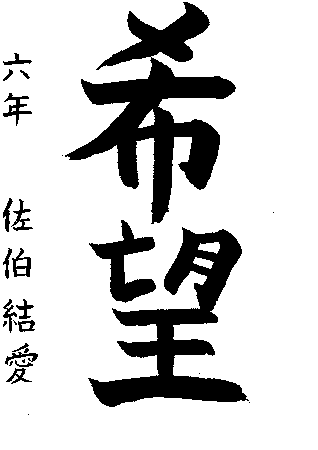 希望
六年 佐伯結愛